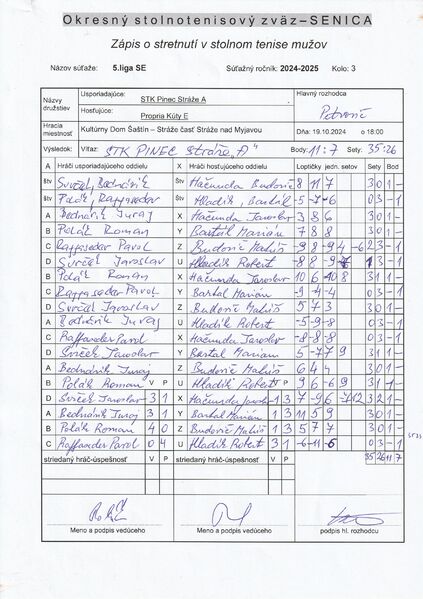 Okresný stolnotenisový zväz – SENICA
Zápis o stretnutí v stolnom tenise mužov
Názov súťaže: 5.liga SE Súťažný ročník: 2024-2025 Kolo: 3
Názvy družstiev Usporiadajúce: STK Pinec Stráže A Hlavný rozhodca
Hosťujúce: Propria Kúty E
Hracia miestnosť Kultúrny Dom Šaštín – Stráže časť Stráže nad Myjavou DŇa: 19.10.2024 o 18:00
Výsledok: Víťaz: STK PINEC Stráže „A“ Body: 11:7 Sety: 35:26
A Hráči usporiadajúceho oddielu X Hráči hosťujúceho oddielu Loptičky jedn. setov Sety Bod
Štv Svrček, Bednárik Štv Hačunda Budovič 8 11 7 3 0 1 –
Štv Polák, Raffaseder Štv Hladík, Bartál -5 -7 -6 0 3 – 1
A Bednárik Juraj X Hačunda Jaroslav 3 8 6 3 0 1 –
B Polák Roman Y Bartál Marián 7 8 8 3 0 1 –
C Raffaseder Pavol Z Budovič Matúš 9 -8 9 -4 -6 2 3 – 1
D Svrček Jaroslav U Hladík Robert
B Polák Roman X Hačunda Jaroslav 10 6 -10 8 3 1 1 –
C Raffaseder Pavol Y Bartal Marián -9 -4 -4 0 3 – 1
D Svrček Jaroslav Z Budovič Matúš 5 7 3 3 0 1 –
A Bednárik Juraj U Hladik Robert -5 -9 -8 0 3 – 1
C Raffaseder Pavol X Hačunda Jaroslav -8 -8 -8 0 3 – 1
D Svrček Jaroslav Y Bartal Mariam 5 -7 7 9 3 1 1 –
A Bednárik Juraj Z Budovič Matúš 6 4 4 3 0 1 –
B Polák Roman V P U Hladik Robert V P 9 6 -6 9 3 1 1 –
D Svrček Jaroslav 3 1 X Hačunda Jaroslav 1 3 7 -9 6 -7 12 3 2 1 –
A Bednárik Juraj 3 1 Y Bartal Marián 1 3 11 5 9 3 0 1 –
B Polák Roman 4 0 Z Budovič Matúš 1 3 5 7 7 3 0 1 –
C Raffaseder Pavol 0 4 U Hladik Robert 3 1 -6 -11 -6 0 3 – 1
striedaný hráč-úspešnosť striedaný hráč-úspešnosť 35 26 11 7
Meno a podpis vedúceho Meno a podpis vedúceho podpis hl. rozhodcu